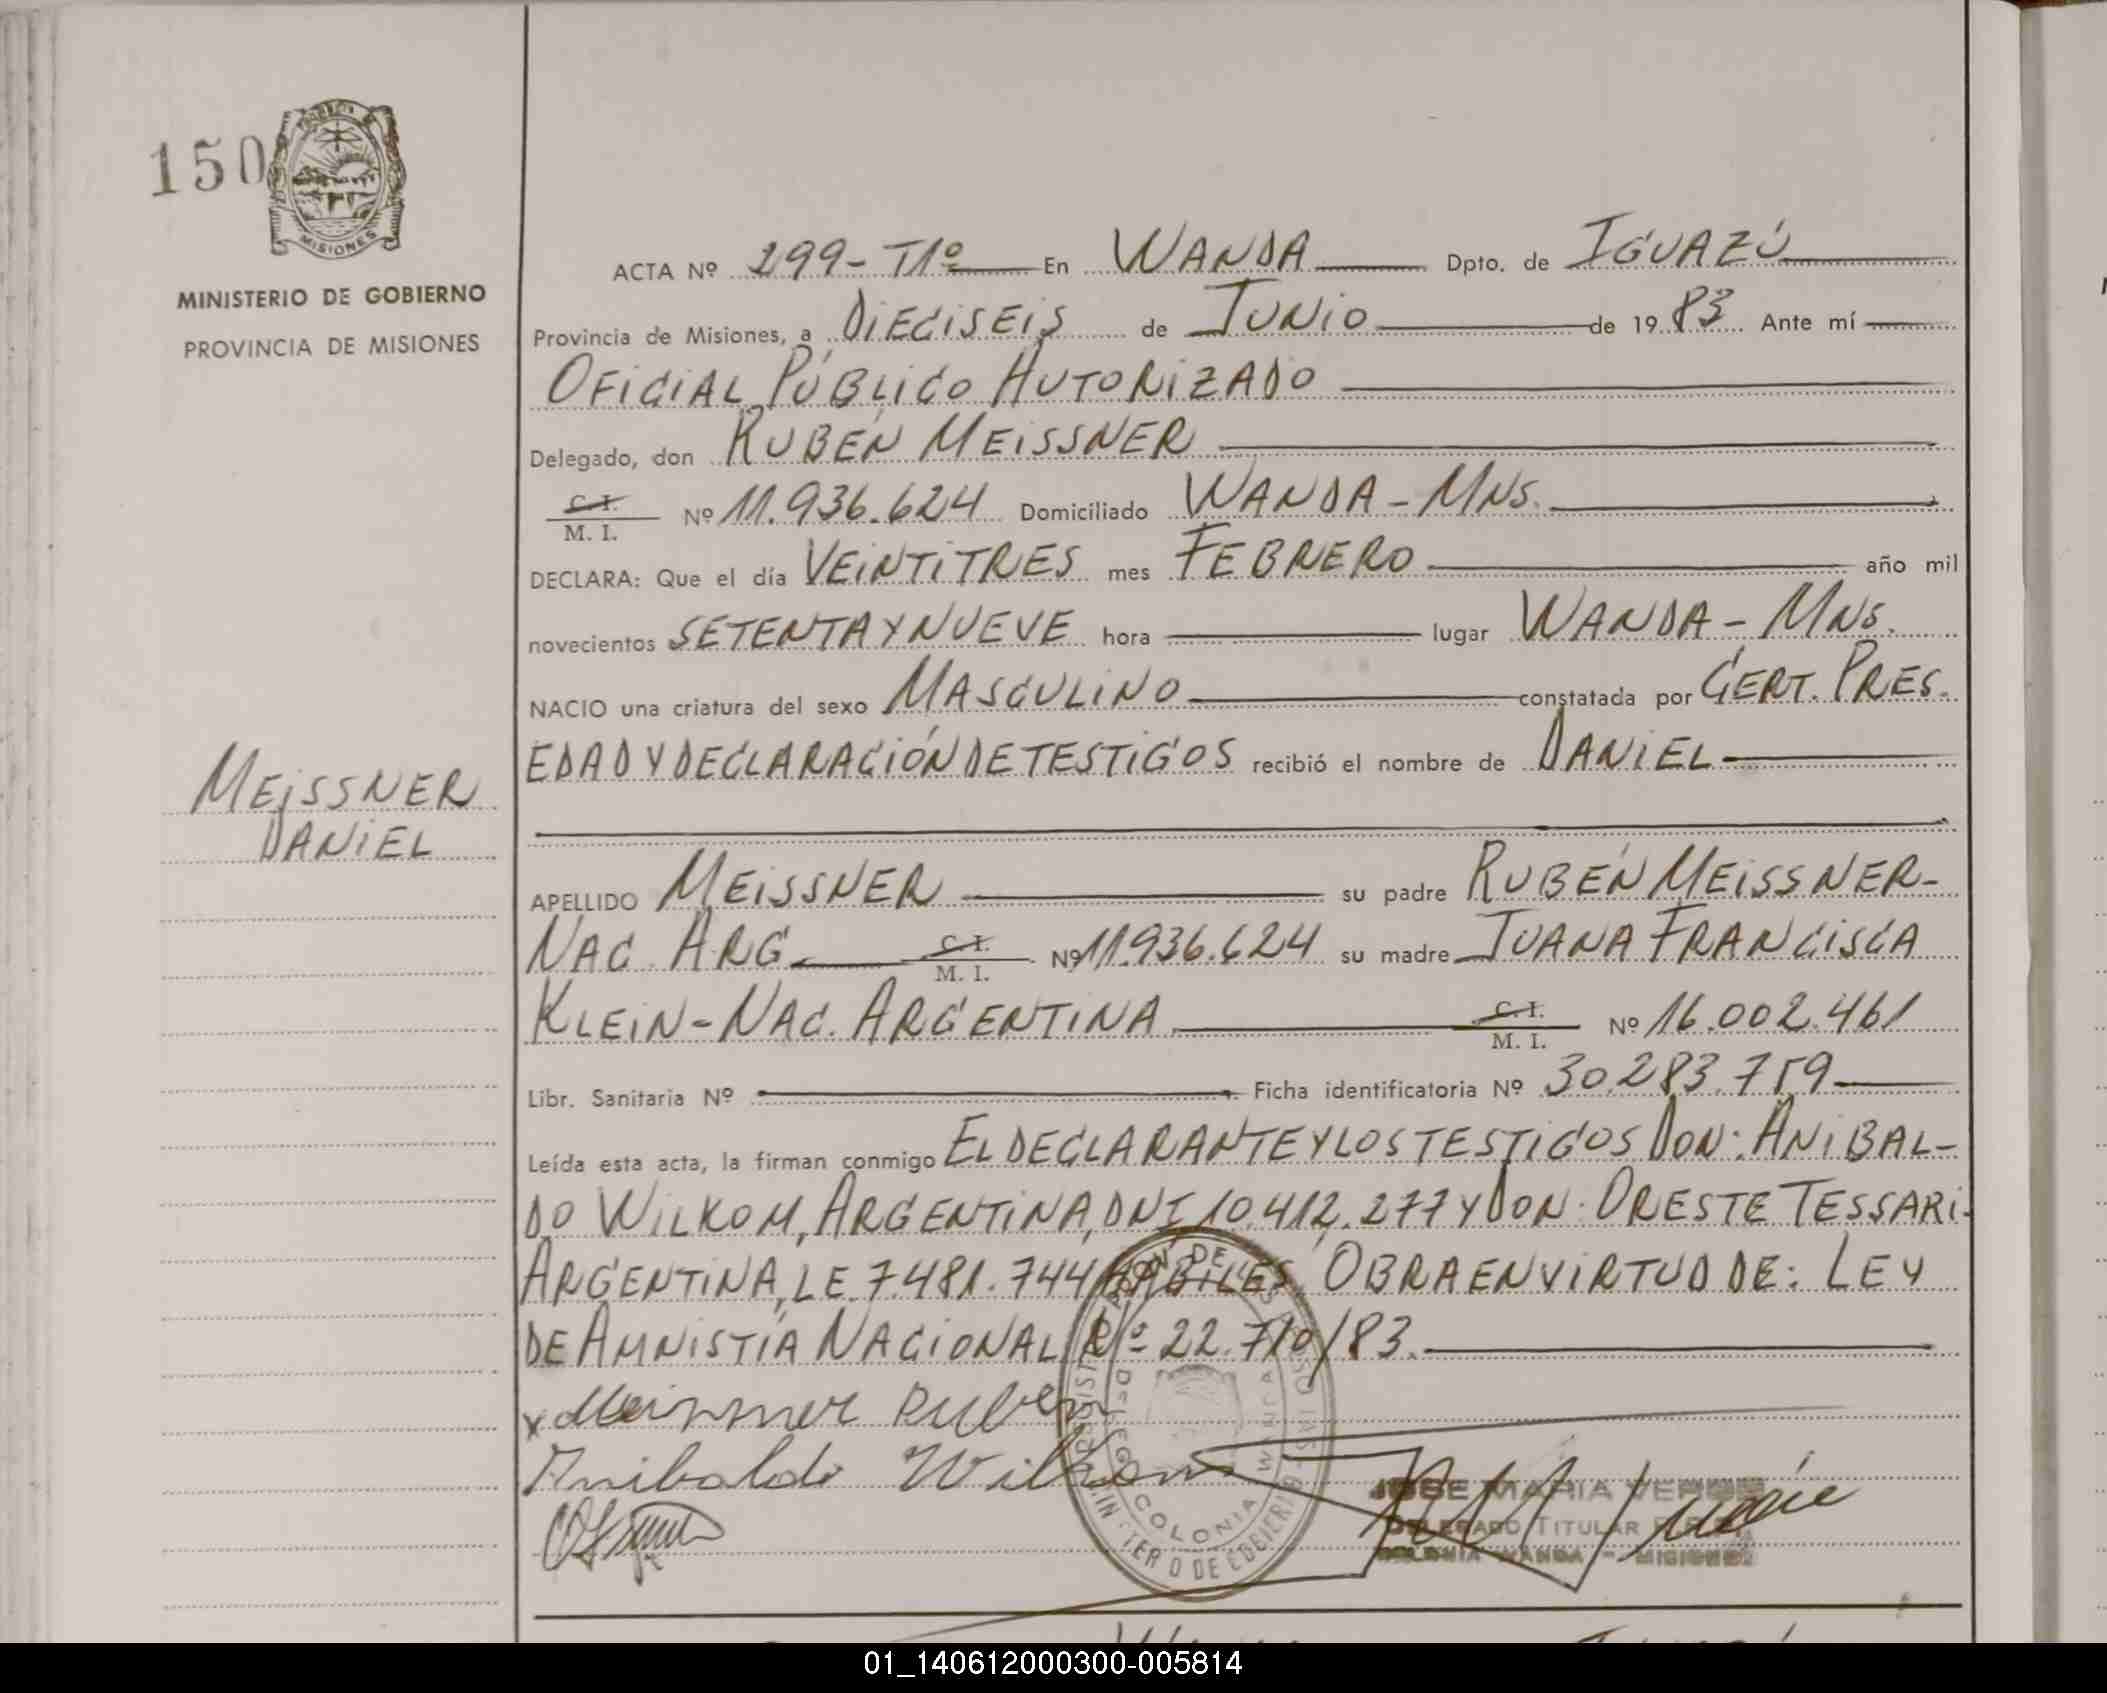 150
MISIONES
MINISTERIO DE GOBIERNO
PROVINCIA DE MISIONES
MEISSNER
DANIEL
ACTA Nº 299-T1º En WANDA Dpto. de IGUAZÚ
Provincia de Misiones, a DIECISEIS de JUNIO de 1983 Ante mí
OFICIAL PÚBLICO AUTORIZADO
Delegado, don RUBÉN MEISSNER
C. I.
M. I. Nº 11.936.624 Domiciliado WANDA-MNS.
DECLARA: Que el día VEINTITRES mes FEBRERO año mil
novecientos SETENTA Y NUEVE hora lugar WANDA-MNS.
NACIO una criatura del sexo MASCULINO constatada por CERT. PRES.
EDAD Y DECLARACIÓN DE TESTIGOS recibió el nombre de DANIEL
APELLIDO MEISSNER su padre RUBÉN MEISSNER-
NAC. ARG C. I. M. I. Nº 11.936.624 su madre JUANA FRANCISCA
KLEIN-NAC. ARGENTINA C. I. M. I. Nº 16.002.461
Libr. Sanitaria Nº Ficha identificatoria Nº 30.283.759
Leída esta acta, la firman conmigo EL DECLARANTE Y LOS TESTIGOS DON: ANIBAL-
DO WILKOM, ARGENTINA, DNI, 10.412.277 Y DON: ORESTE TESSARI.
ARGENTINA, LE. 7.481.744 HABILES. OBRA EN VIRTUD DE: LEY
DE AMNISTÍA NACIONAL Nº 22.710/83.
x Meissner Ruben
Anibaldo Wilkom
JOSE MARIA
DELEGADO TITULAR
COLONIA WANDA - MISIONES
COLONIA WANDA
01_140612000300-005814